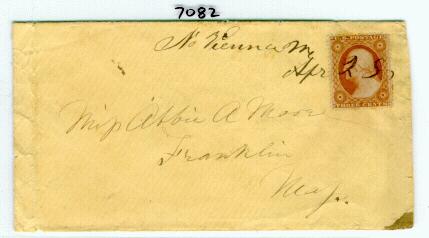 7082
No Vienna Me
Apr 25
U.S. POSTAGE
THREE CENTS
Miss Abbie A Moore
Franklin
Mass.